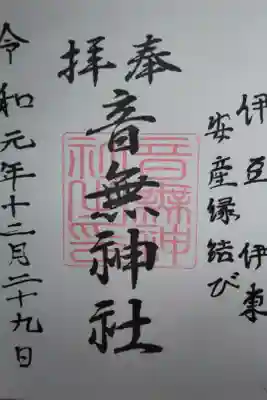 伊豆 伊東
安産縁結び
奉拝
音無神社
令和元年十二月二十九日
音無神社之印